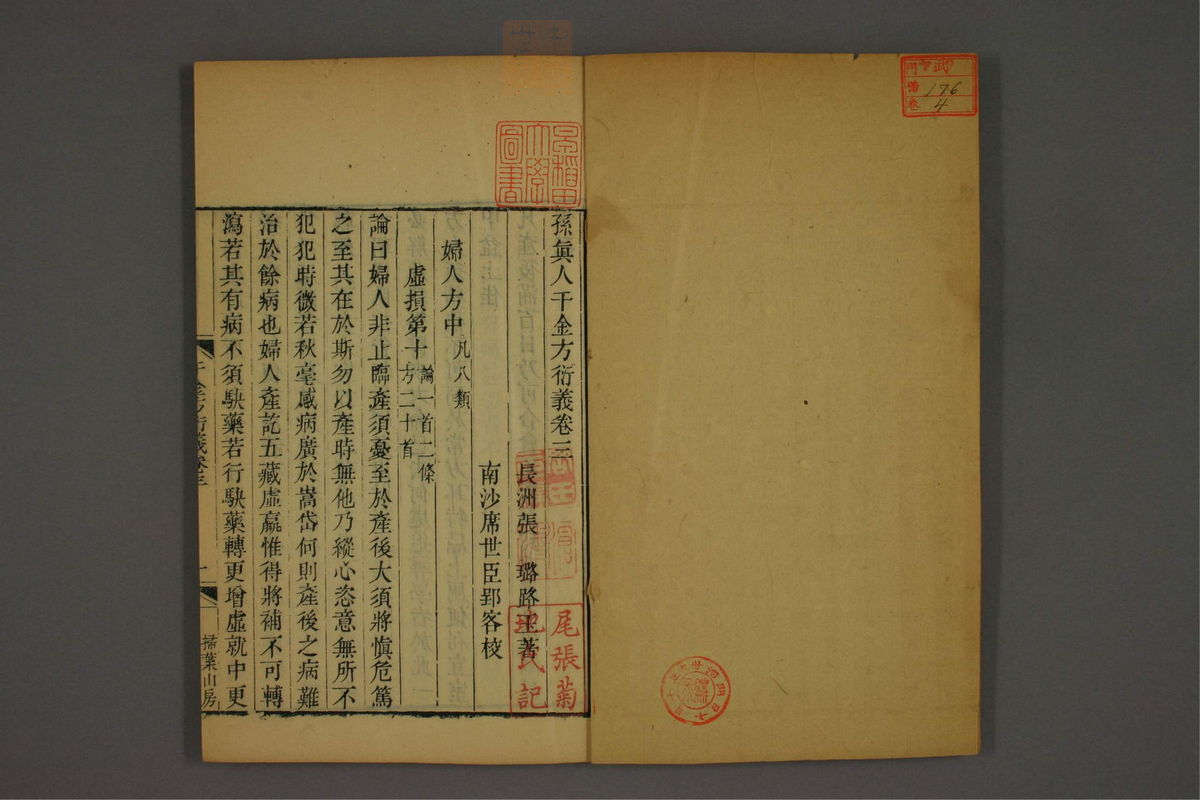 孫眞人千金方衍義卷三
長洲張　璐路玉著
南沙席世臣郢客校
婦人方中凡八類
虛損第十論一首二條
方二十首
論曰婦人非止臨產須憂至於產後大須將慎危篤
之至其在於斯勿以產時無他乃縱心恣意無所不
犯犯時微若秋毫感病廣於嵩岱何則產後之病難
治於餘病也婦人產訖五藏虛羸惟得將補不可轉
瀉若其有病不須駃藥若行駃藥轉更增虛就中更
千金方衍義卷三
一
掃葉山房
早稻田
大學
圖書
尾張菊
地氏記
武
176
4